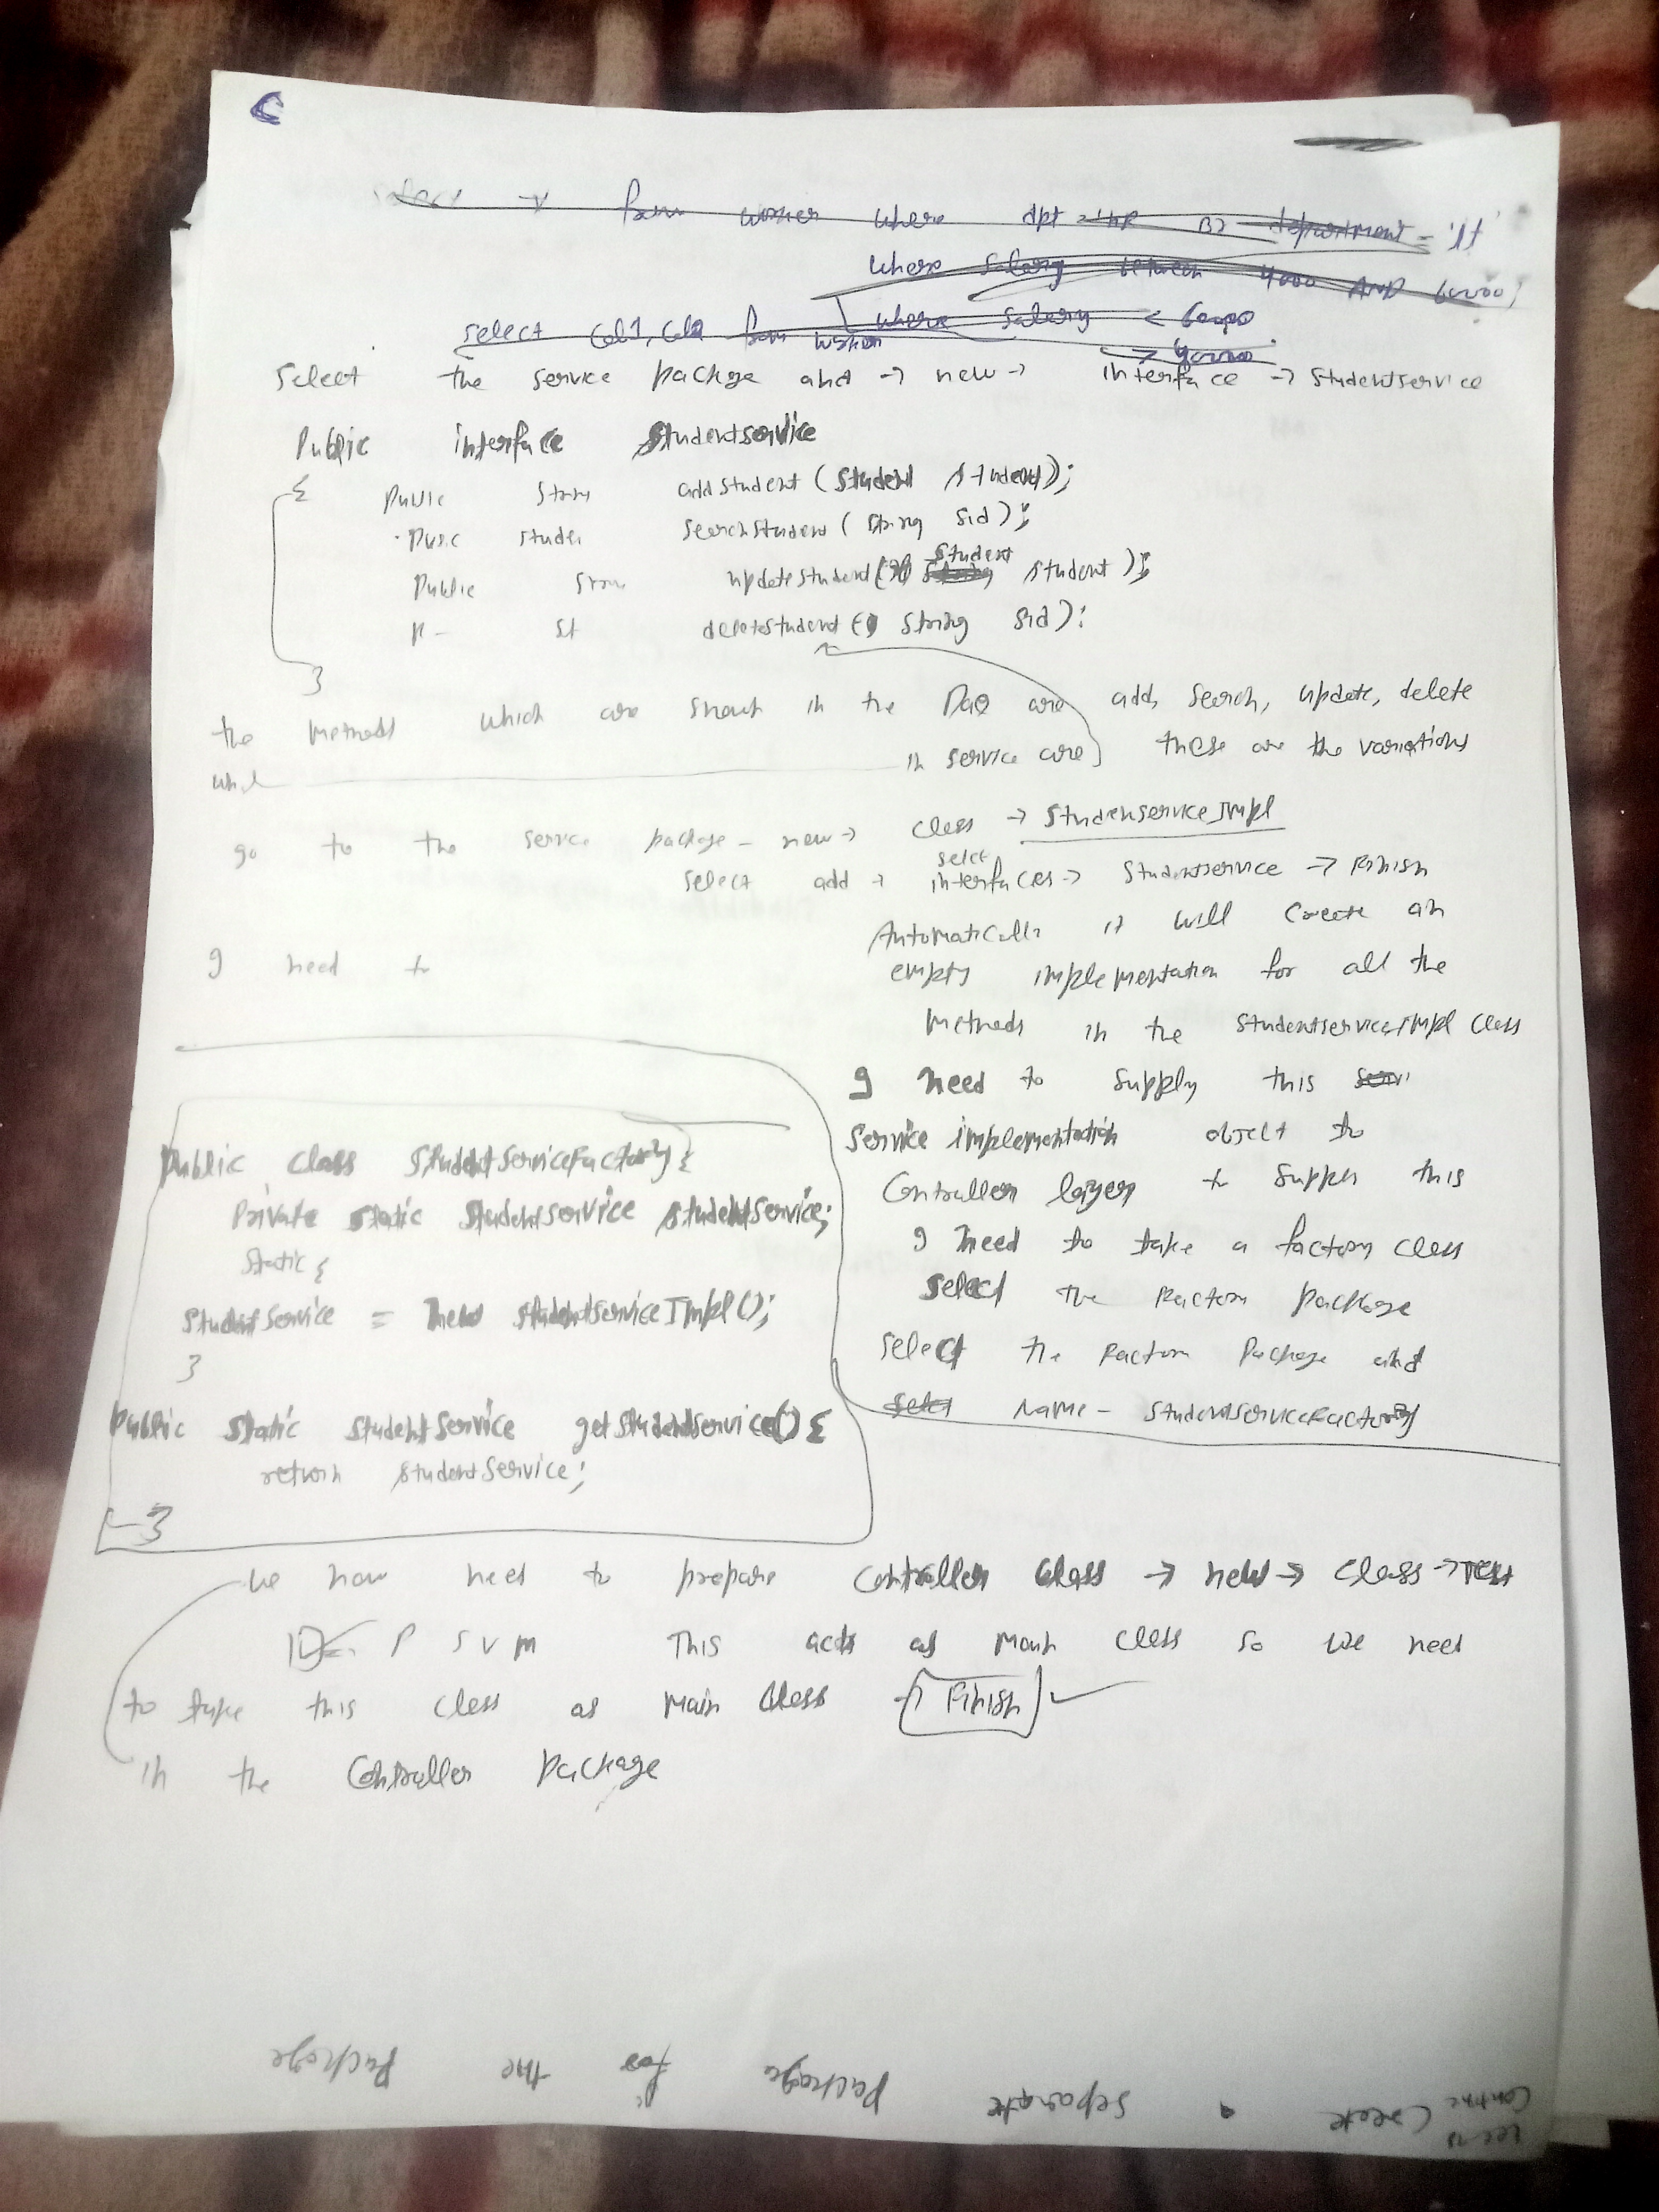 from worker where dpt = 'HR' department = 'It'
where salary between 4000 AND 60000;
select col1, col2 from worker where salary < 60000
> 40000
Select the service package and → new → interface → Studentservice
Public interface Studentservice
{ Public Strin addStudent (Student student);
Pubic studen SearchStudent (String sid);
Public Strin updateStudent (Student student);
P- St deleteStudent (String sid);
}
the methods which are in the Dao are add, search, update, delete
in service are} these are the variations
go to the service package - new → class → StudenserviceImpl
select add → selct interfaces → Studentservice → Finish
Automatically it will create an
empty implementation for all the
methods in the StudentserviceImpl class
I need to
I need to supply this
Service implementation object to
Controller layer to supply this
I need to take a factory class
select the Factory package
select the Factory Package and
name - StudentServiceFactory
Public class StudentServiceFactory {
Private static StudentService studentService;
static {
StudentService = new studentServiceImpl();
}
Public static StudentService getStudentService() {
return studentService;
}
we now need to prepare Controller class → new → class → Test
P S V M This acts as main class so we need
to take this class as main class → Finish
in the Controller package
Create separate package for the package